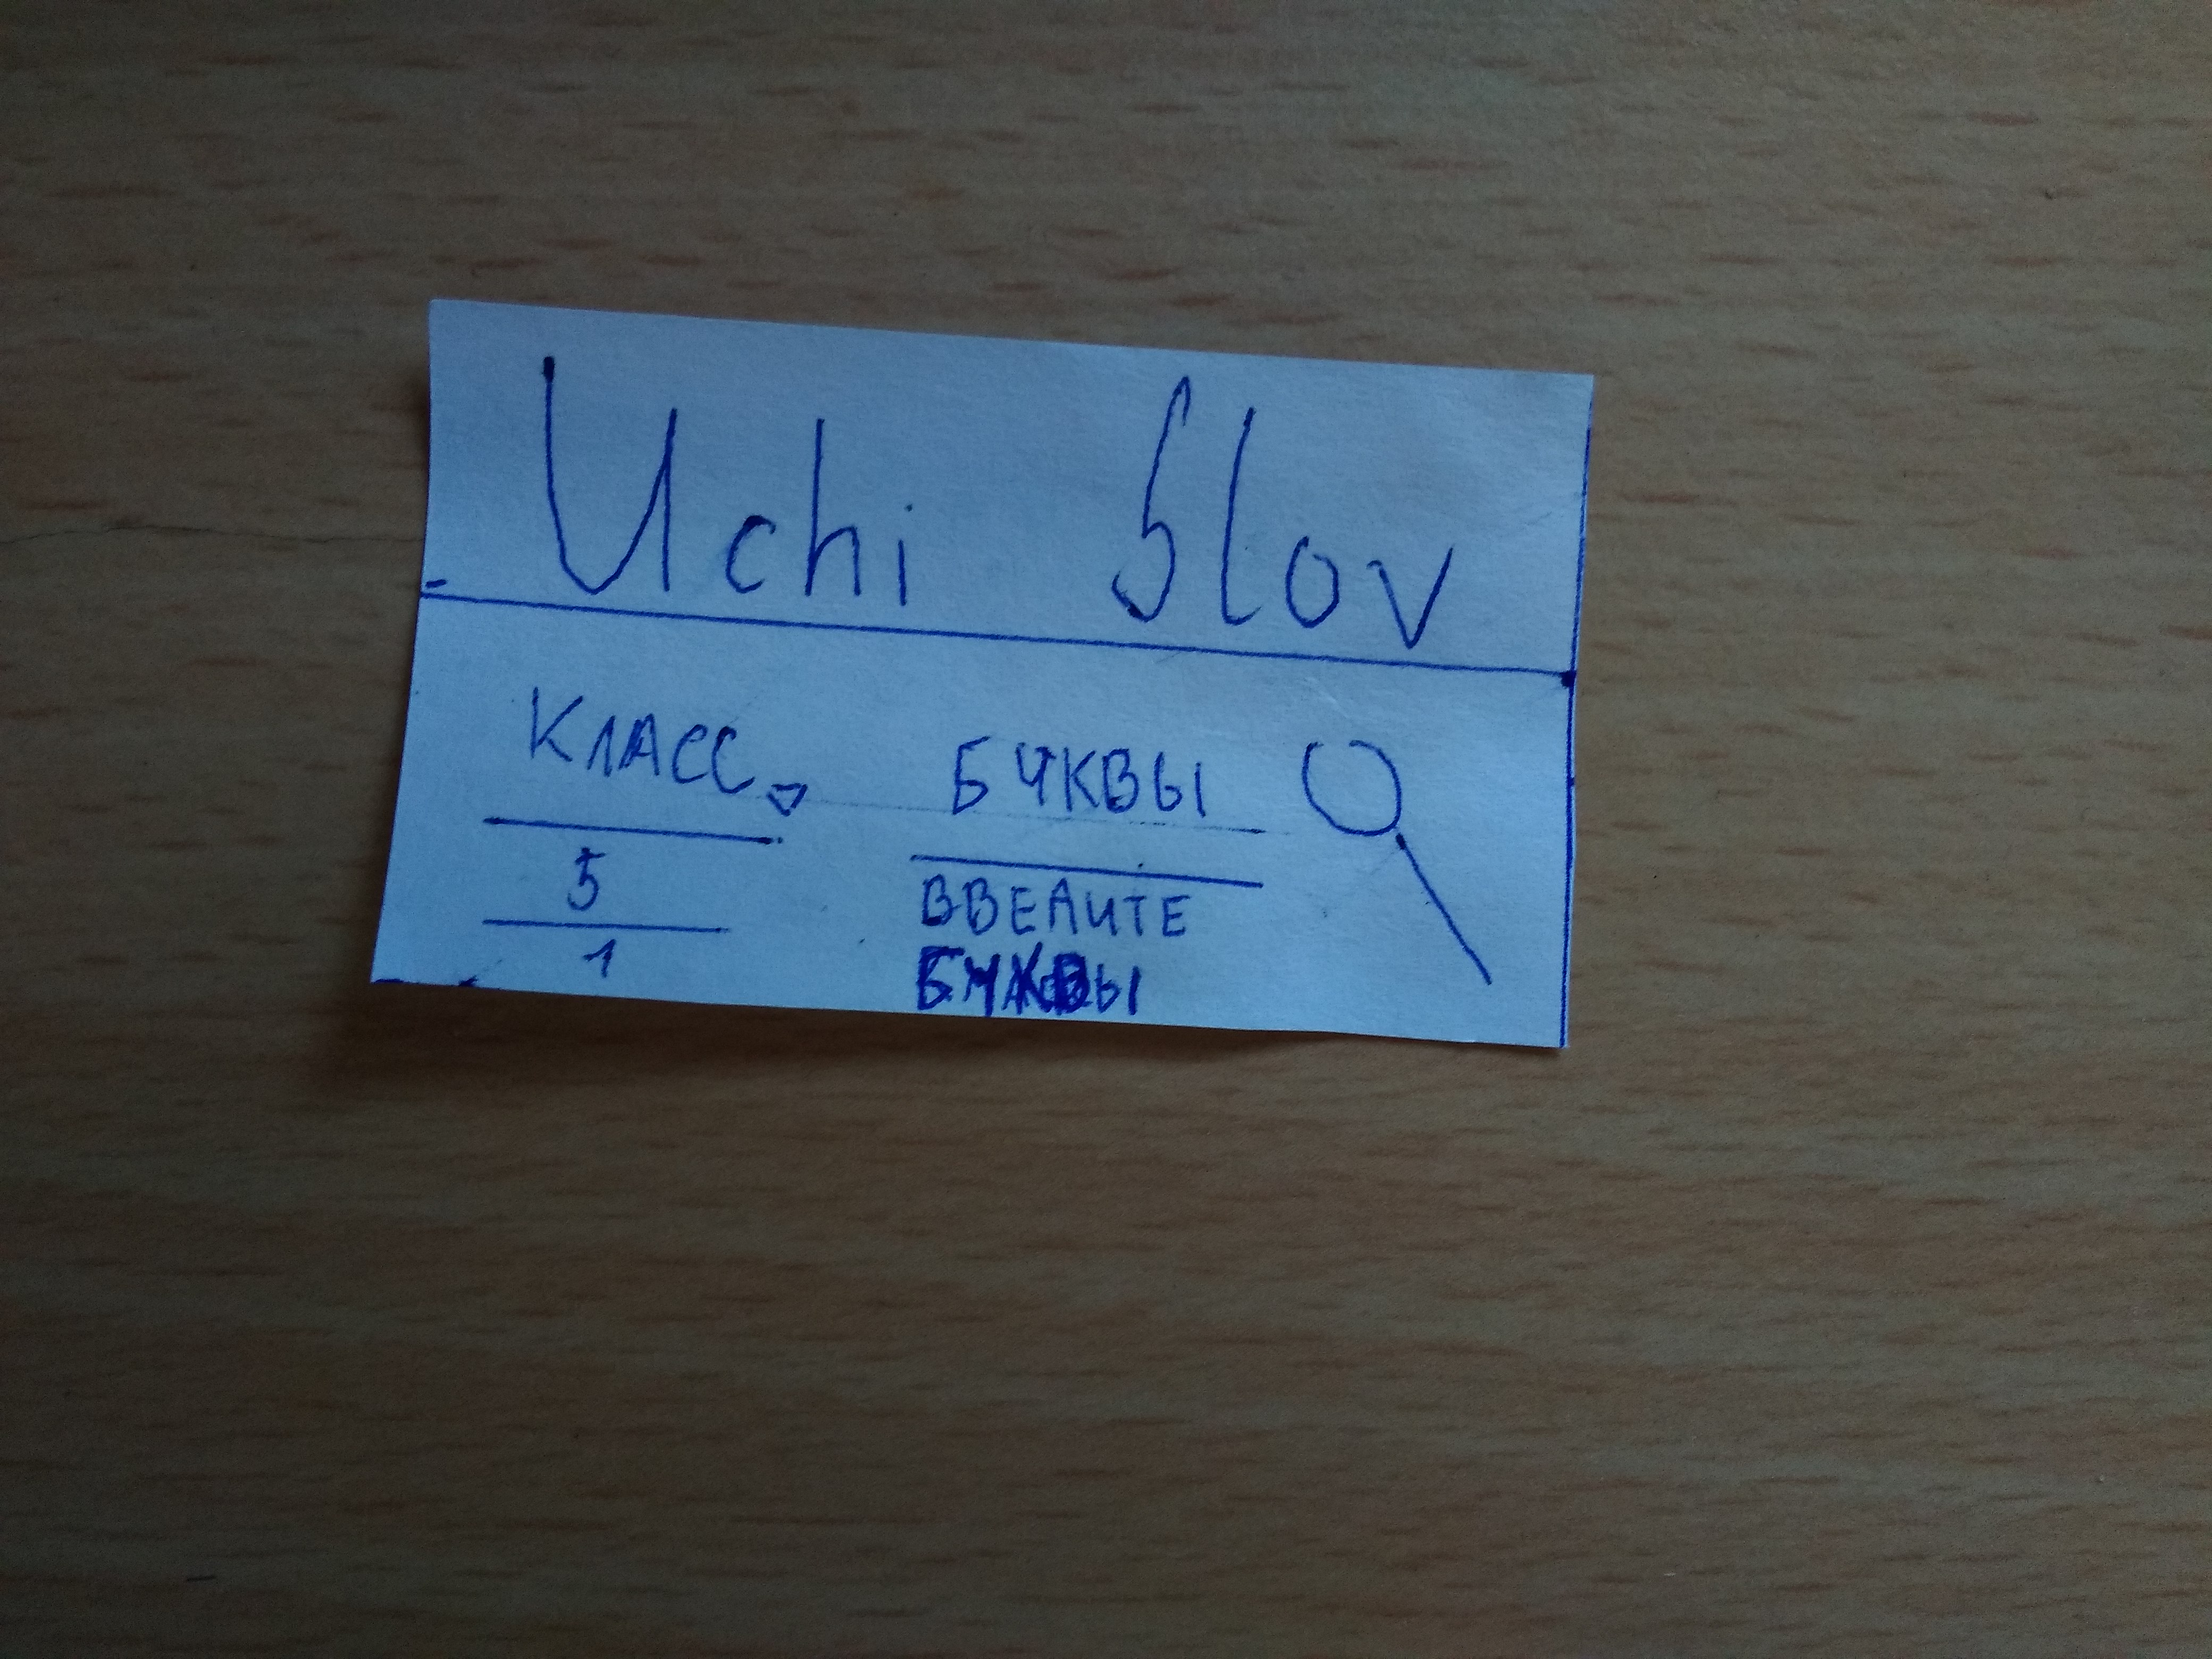 Uchi Slov
КЛАСС БУКВЫ
5 ВВЕДИТЕ
1 БУКВЫ